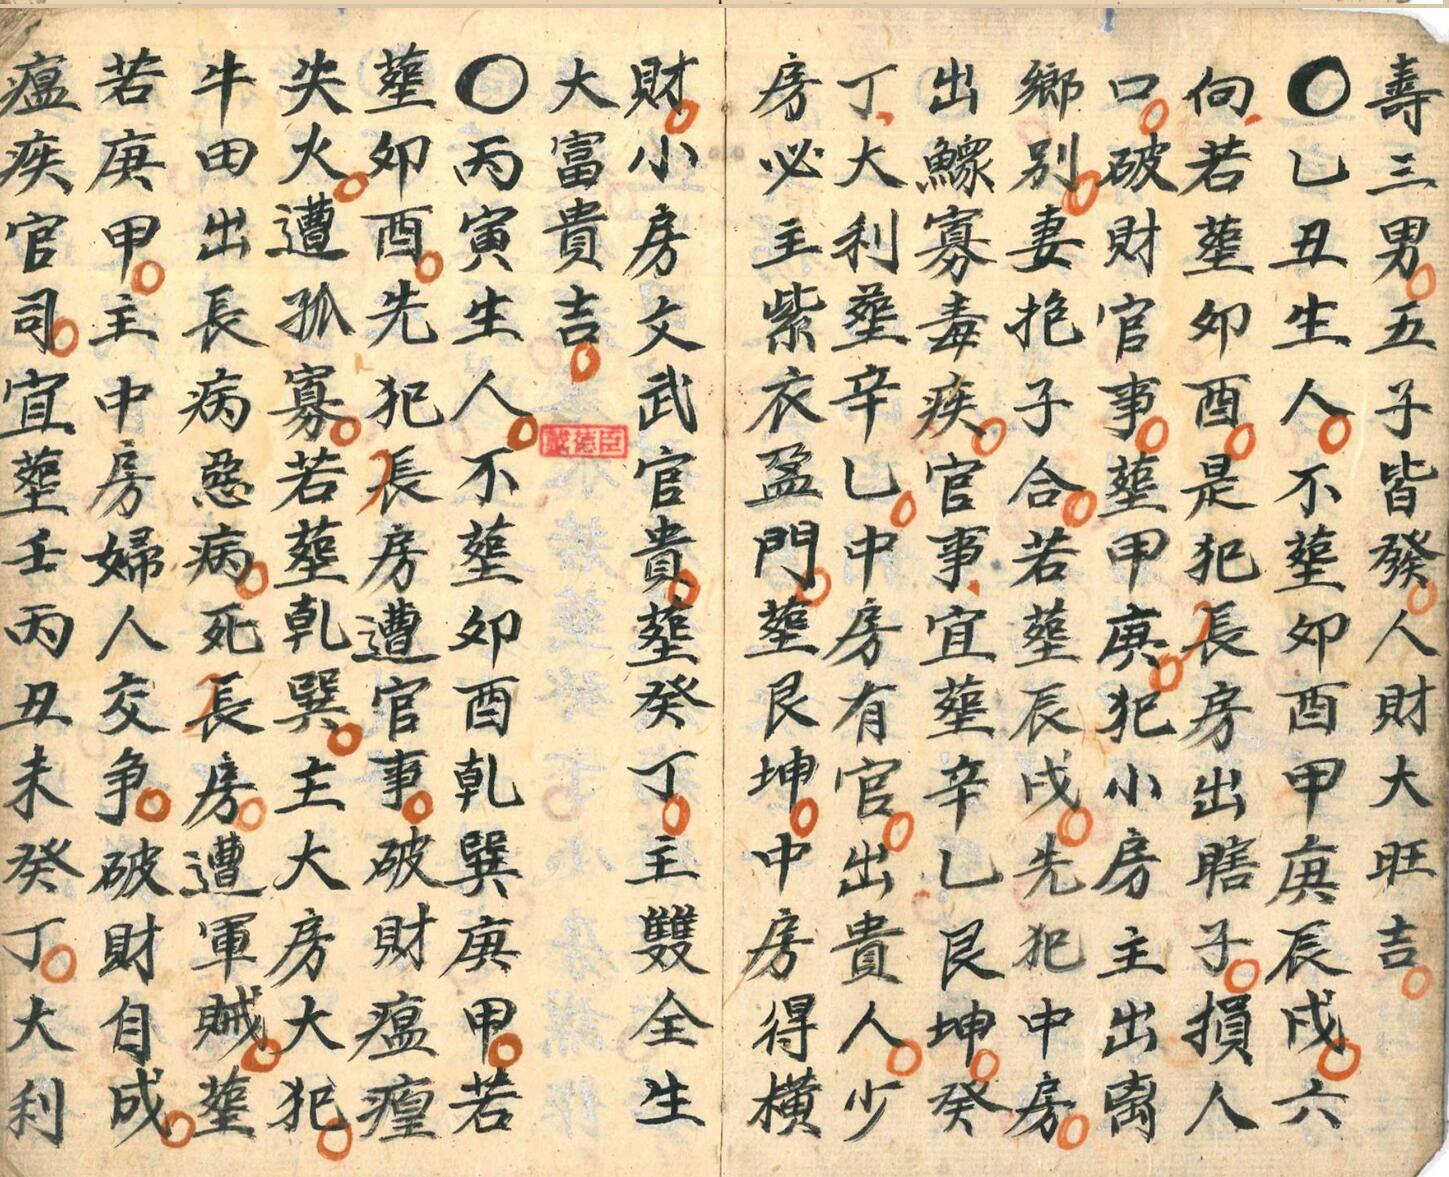 壽三男五子皆發人財大旺吉
〇乙丑生人不塟夘酉甲庚辰戌六
向若塟夘酉是犯長房出瞎子損人
口破財官事塟甲庚犯小房主出离
鄉別妻抱子合若塟辰戌先犯中房
出鰥寡毒疾官事宜塟辛乙艮坤癸
丁大利塟辛乙中房有官出貴人少
房必主紫衣盈門塟艮坤中房得橫
財小房文武官貴塟癸丁主雙全生
大富貴吉
〇丙寅生人不塟夘酉乾巽庚甲若
塟夘酉先犯長房遭官事破財瘟瘟
失火遭孤寡若塟乾巽主大房大犯
牛田出長病惡病死長房遭軍賊塟
若庚甲主中房婦人交爭破財自成
瘟疾官司宜塟壬丙丑未癸丁大利